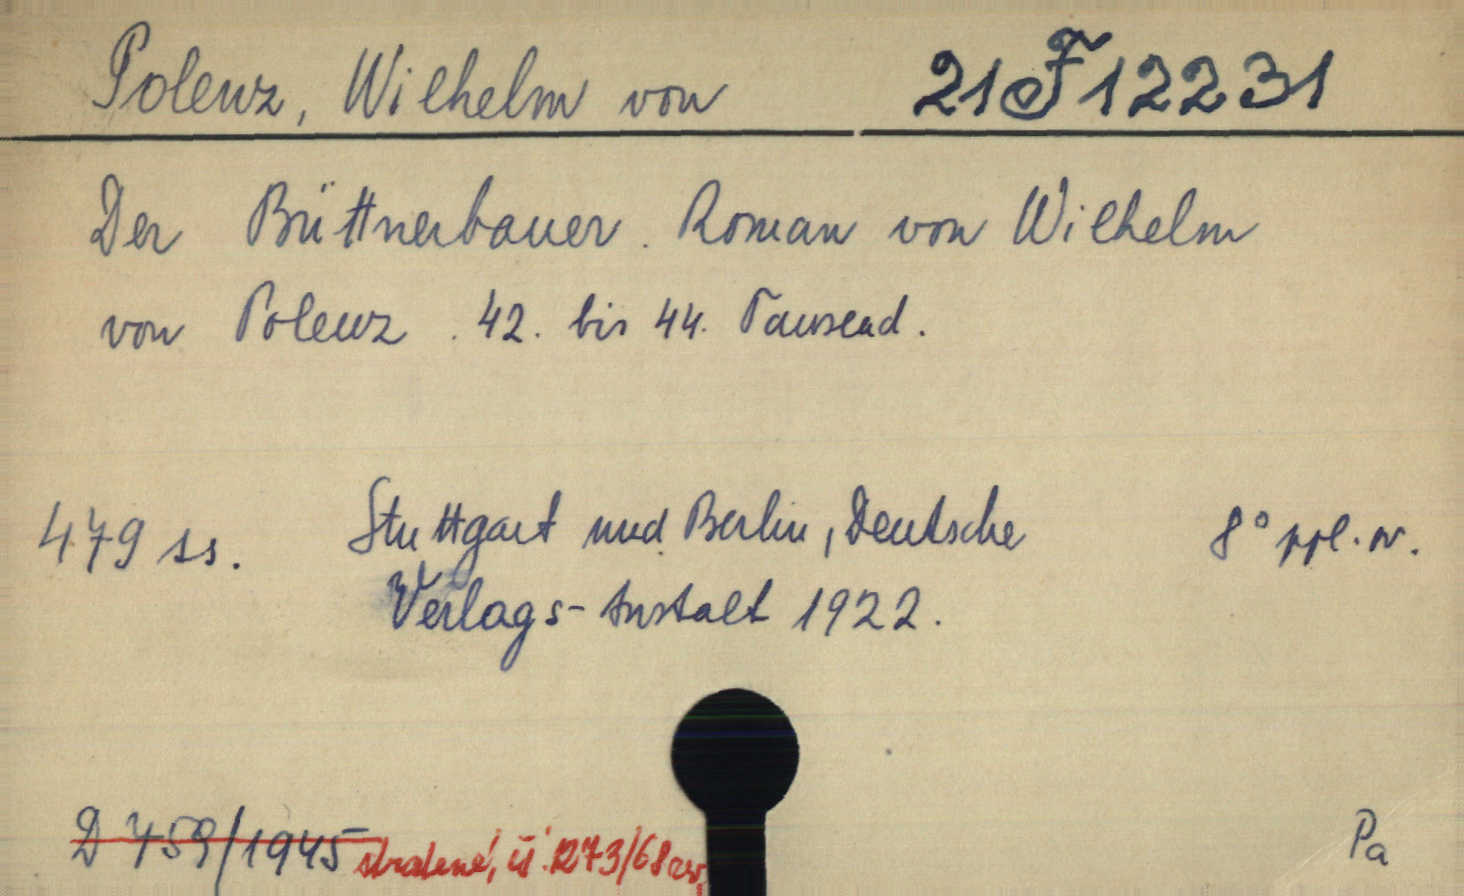 Polenz, Wilhelm von 21 F 12231
Der Büttnerbauer. Roman von Wilhelm
von Polenz. 42. bis 44. Tausend.
479 ss. Stuttgart und Berlin, Deutsche 8° ppl. v.
Verlags-Anstalt 1922.
D 459/1945 ztratené, 273/68
Pa